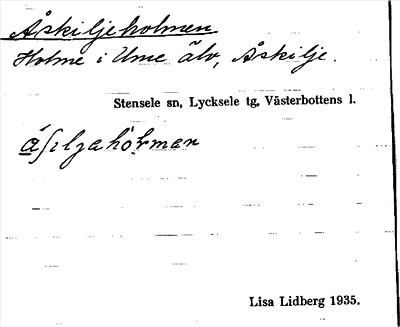 Åskiljeholmen
Holme i Ume älv, Åskilje.
Stensele sn, Lycksele tg, Västerbottens l.
Lisa Lidberg 1935.